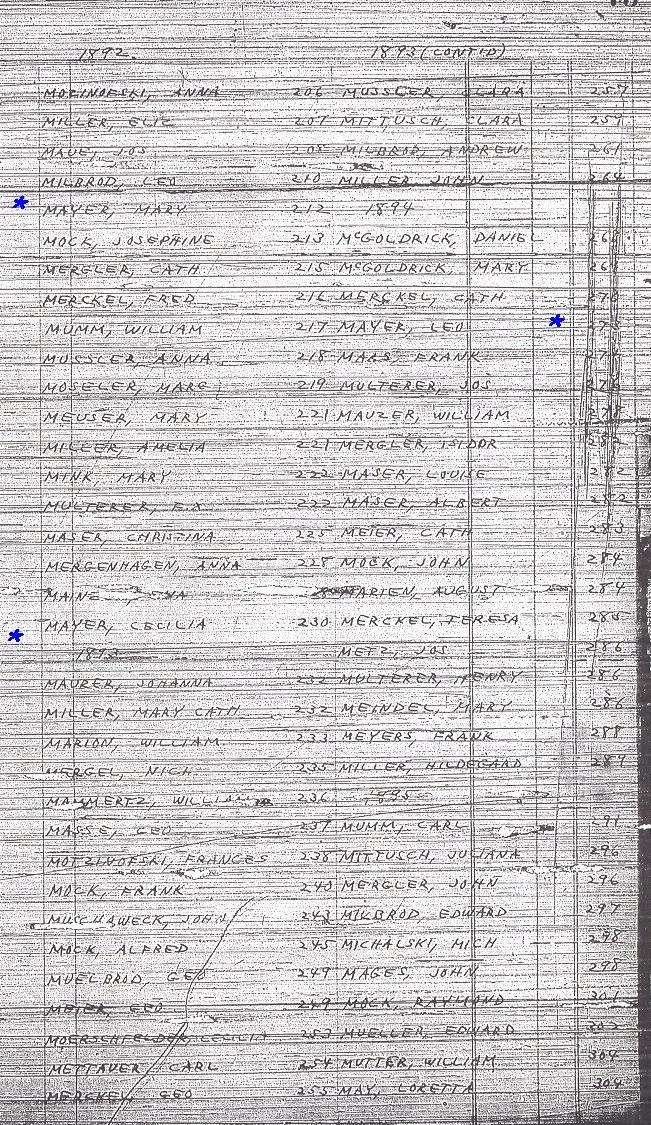 1892.
MOZINOFSKI, ANNA 206
MILLER, ELIZ 207
MAUE, JOS 208
MILBROD, LEO 210
MAYER, MARY 212
MOCK, JOSEPHINE 213
MERGLER, CATH 215
MERCKEL, FRED 216
MUMM, WILLIAM 217
MUSSLER, ANNA 218
MOSELER, MARG 219
MEUSER, MARY 221
MILLER, AMELIA 221
MINK, MARY 222
MULTERER, F.X 222
MASER, CHRISTINA 225
MERGENHAGEN, ANNA 228
MAYER, CECILIA 230
1893
MAURER, JOHANNA 232
MILLER, MARY CATH 232
MARION, WILLIAM 233
MERGEL, NICH 235
MAMMERTZ, WILLIAM 236
MASSE, GEO 237
MOTZINOFSKI, FRANCES 238
MOCK, FRANK 240
MUSCHAWECK, JOHN 243
MOCK, ALFRED 245
MUELBROD, GEO 249
MEIER, GEO 249
MOERSCHFELDER, CECILIA 253
METTAUER, CARL 254
MERCKEL, GEO 255
1893 (CONT'D)
MUSSLER, CLARA 257
MITTUSCH, CLARA 259
MILBROD, ANDREW 261
MILLER JOHN 264
1894
McGOLDRICK, DANIEL
McGOLDRICK, MARY
MERCKEL, CATH 270
MAYER, LEO
MARS, FRANK 274
MULTERER, JOS 276
MAUZER, WILLIAM 278
MERGLER, ISIDOR 282
MASER, LOUISE 282
MASER, ALBERT 282
MEIER, CATH 283
MOCK, JOHN 284
MARIEN, AUGUST 284
MERCKEL, TERESA 285
METZ, JOS 286
MULTERER, HENRY 286
MEINDEL, MARY 286
MEYERS, FRANK 288
MILLER, HILDEGARD 289
1895
MUMM, CARL 291
MITTUSCH, JULIANA 296
MERGLER, JOHN 296
MILBROD, EDWARD 297
MICHALSKI, MICH 298
MAGES, JOHN 298
MOCK, RAYMOND 301
MUELLER, EDWARD 302
MUTTER, WILLIAM 304
MAY, LORETTA 304